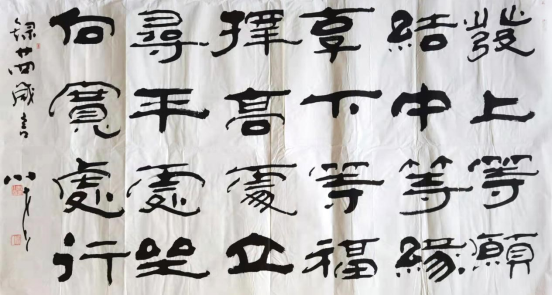 發上等願
結中等緣
享下等福
擇高處立
尋平處坐
向寬處行
錄世四箴言